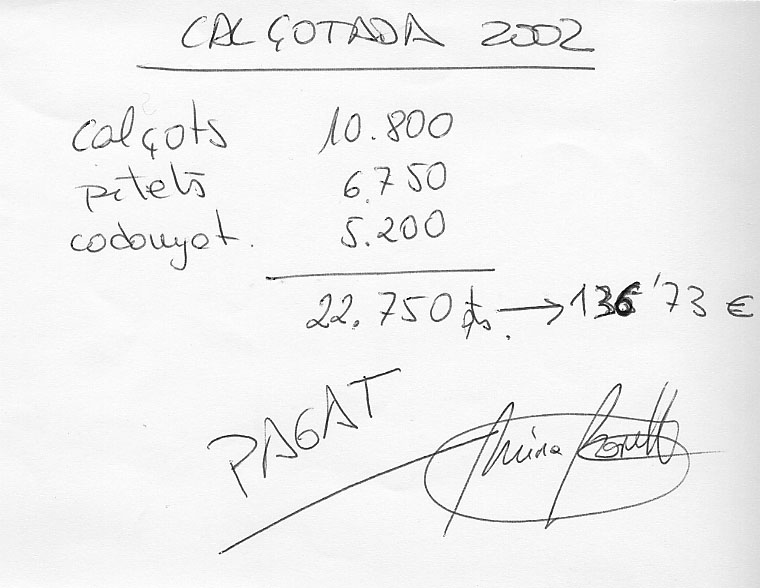 CALÇOTADA 2002
calçots 10.800
pitets 6.750
codonyat. 5.200
22.750 pts. → 136'73 €
PAGAT